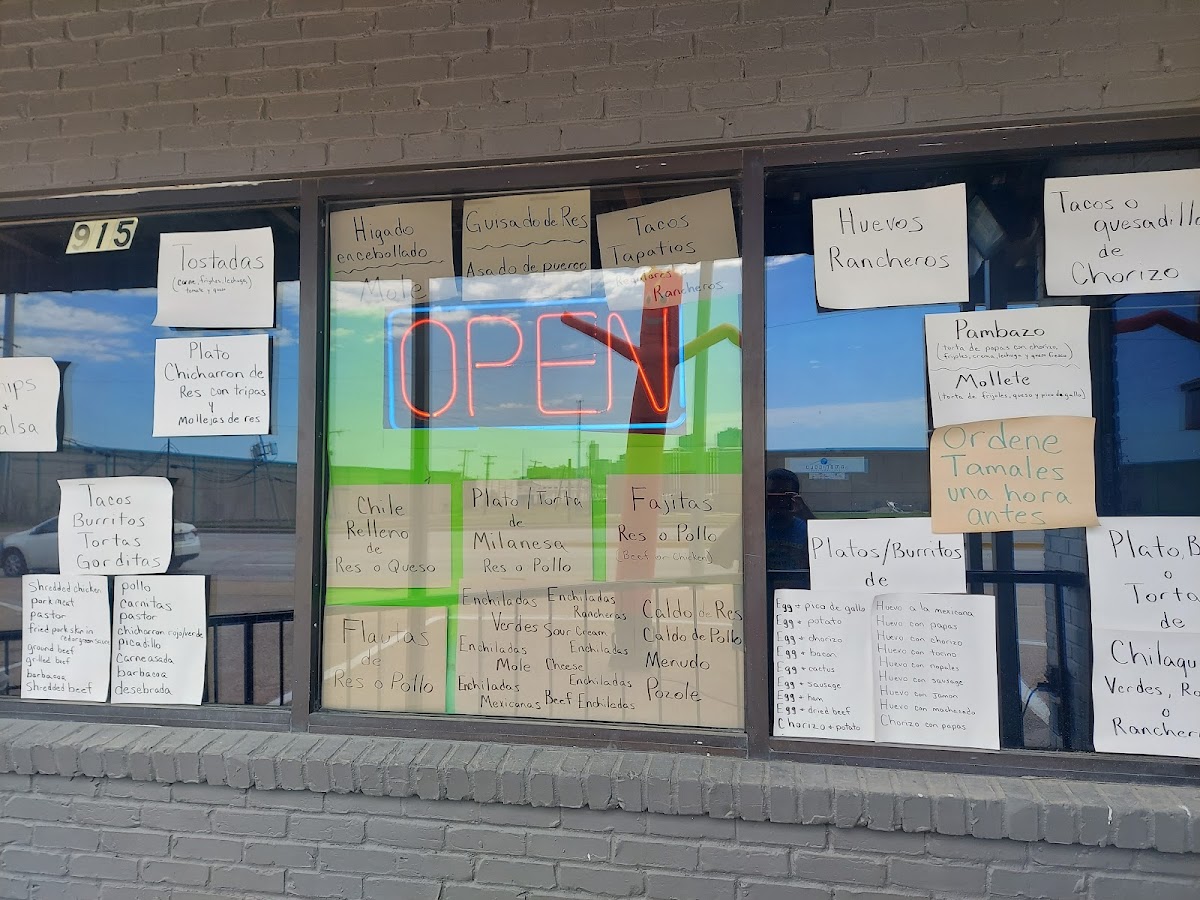 915
Tostadas
(carne, frijoles, lechuga,
tomate y queso)
Plato
Chicharron de
Res con tripas
y
Mollejas de res
hips
+
alsa
Tacos
Burritos
Tortas
Gorditas
Shredded chicken
pork meat
pastor
fried pork skin in
red or green sauce
ground beef
grilled beef
barbacoa
Shredded beef
pollo
carnitas
pastor
chicharron rojo/verde
picadillo
Carne asada
barbacoa
desebrada
Higado
encebollado
Mole
Guisado de Res
Asado de puerco
Tacos
Tapatios
Rancheros
OPEN
Chile
Relleno
de
Res o Queso
Plato / Torta
de
Milanesa
Res o Pollo
Fajitas
Res o Pollo
(Beef or Chicken)
Flautas
de
Res o Pollo
Enchiladas
Verdes
Enchiladas
Mole
Enchiladas
Mexicanas
Enchiladas
Rancheras
Sour Cream
Enchiladas
Cheese
Enchiladas
Beef Enchiladas
Caldo de Res
Caldo de Pollo
Menudo
Pozole
Huevos
Rancheros
Tacos o
quesadill
de
Chorizo
Pambazo
(torta de papas con chorizo,
frijoles, crema, lechuga y queso fresco)
Mollete
(torta de frijoles, queso y pico de gallo)
Ordene
Tamales
una hora
antes
Platos/Burritos
de
Egg + pico de gallo
Egg + potato
Egg + chorizo
Egg + bacon
Egg + cactus
Egg + sausage
Egg + ham
Egg + dried beef
Chorizo + potato
Huevo a la mexicana
Huevo con papas
Huevo con chorizo
Huevo con tocino
Huevo con nopales
Huevo con sausage
Huevo con Jamon
Huevo con machacado
Chorizo con papas
Plato, B
o
Torta
de
Chilaqu
Verdes, Ro
o
Ranchero